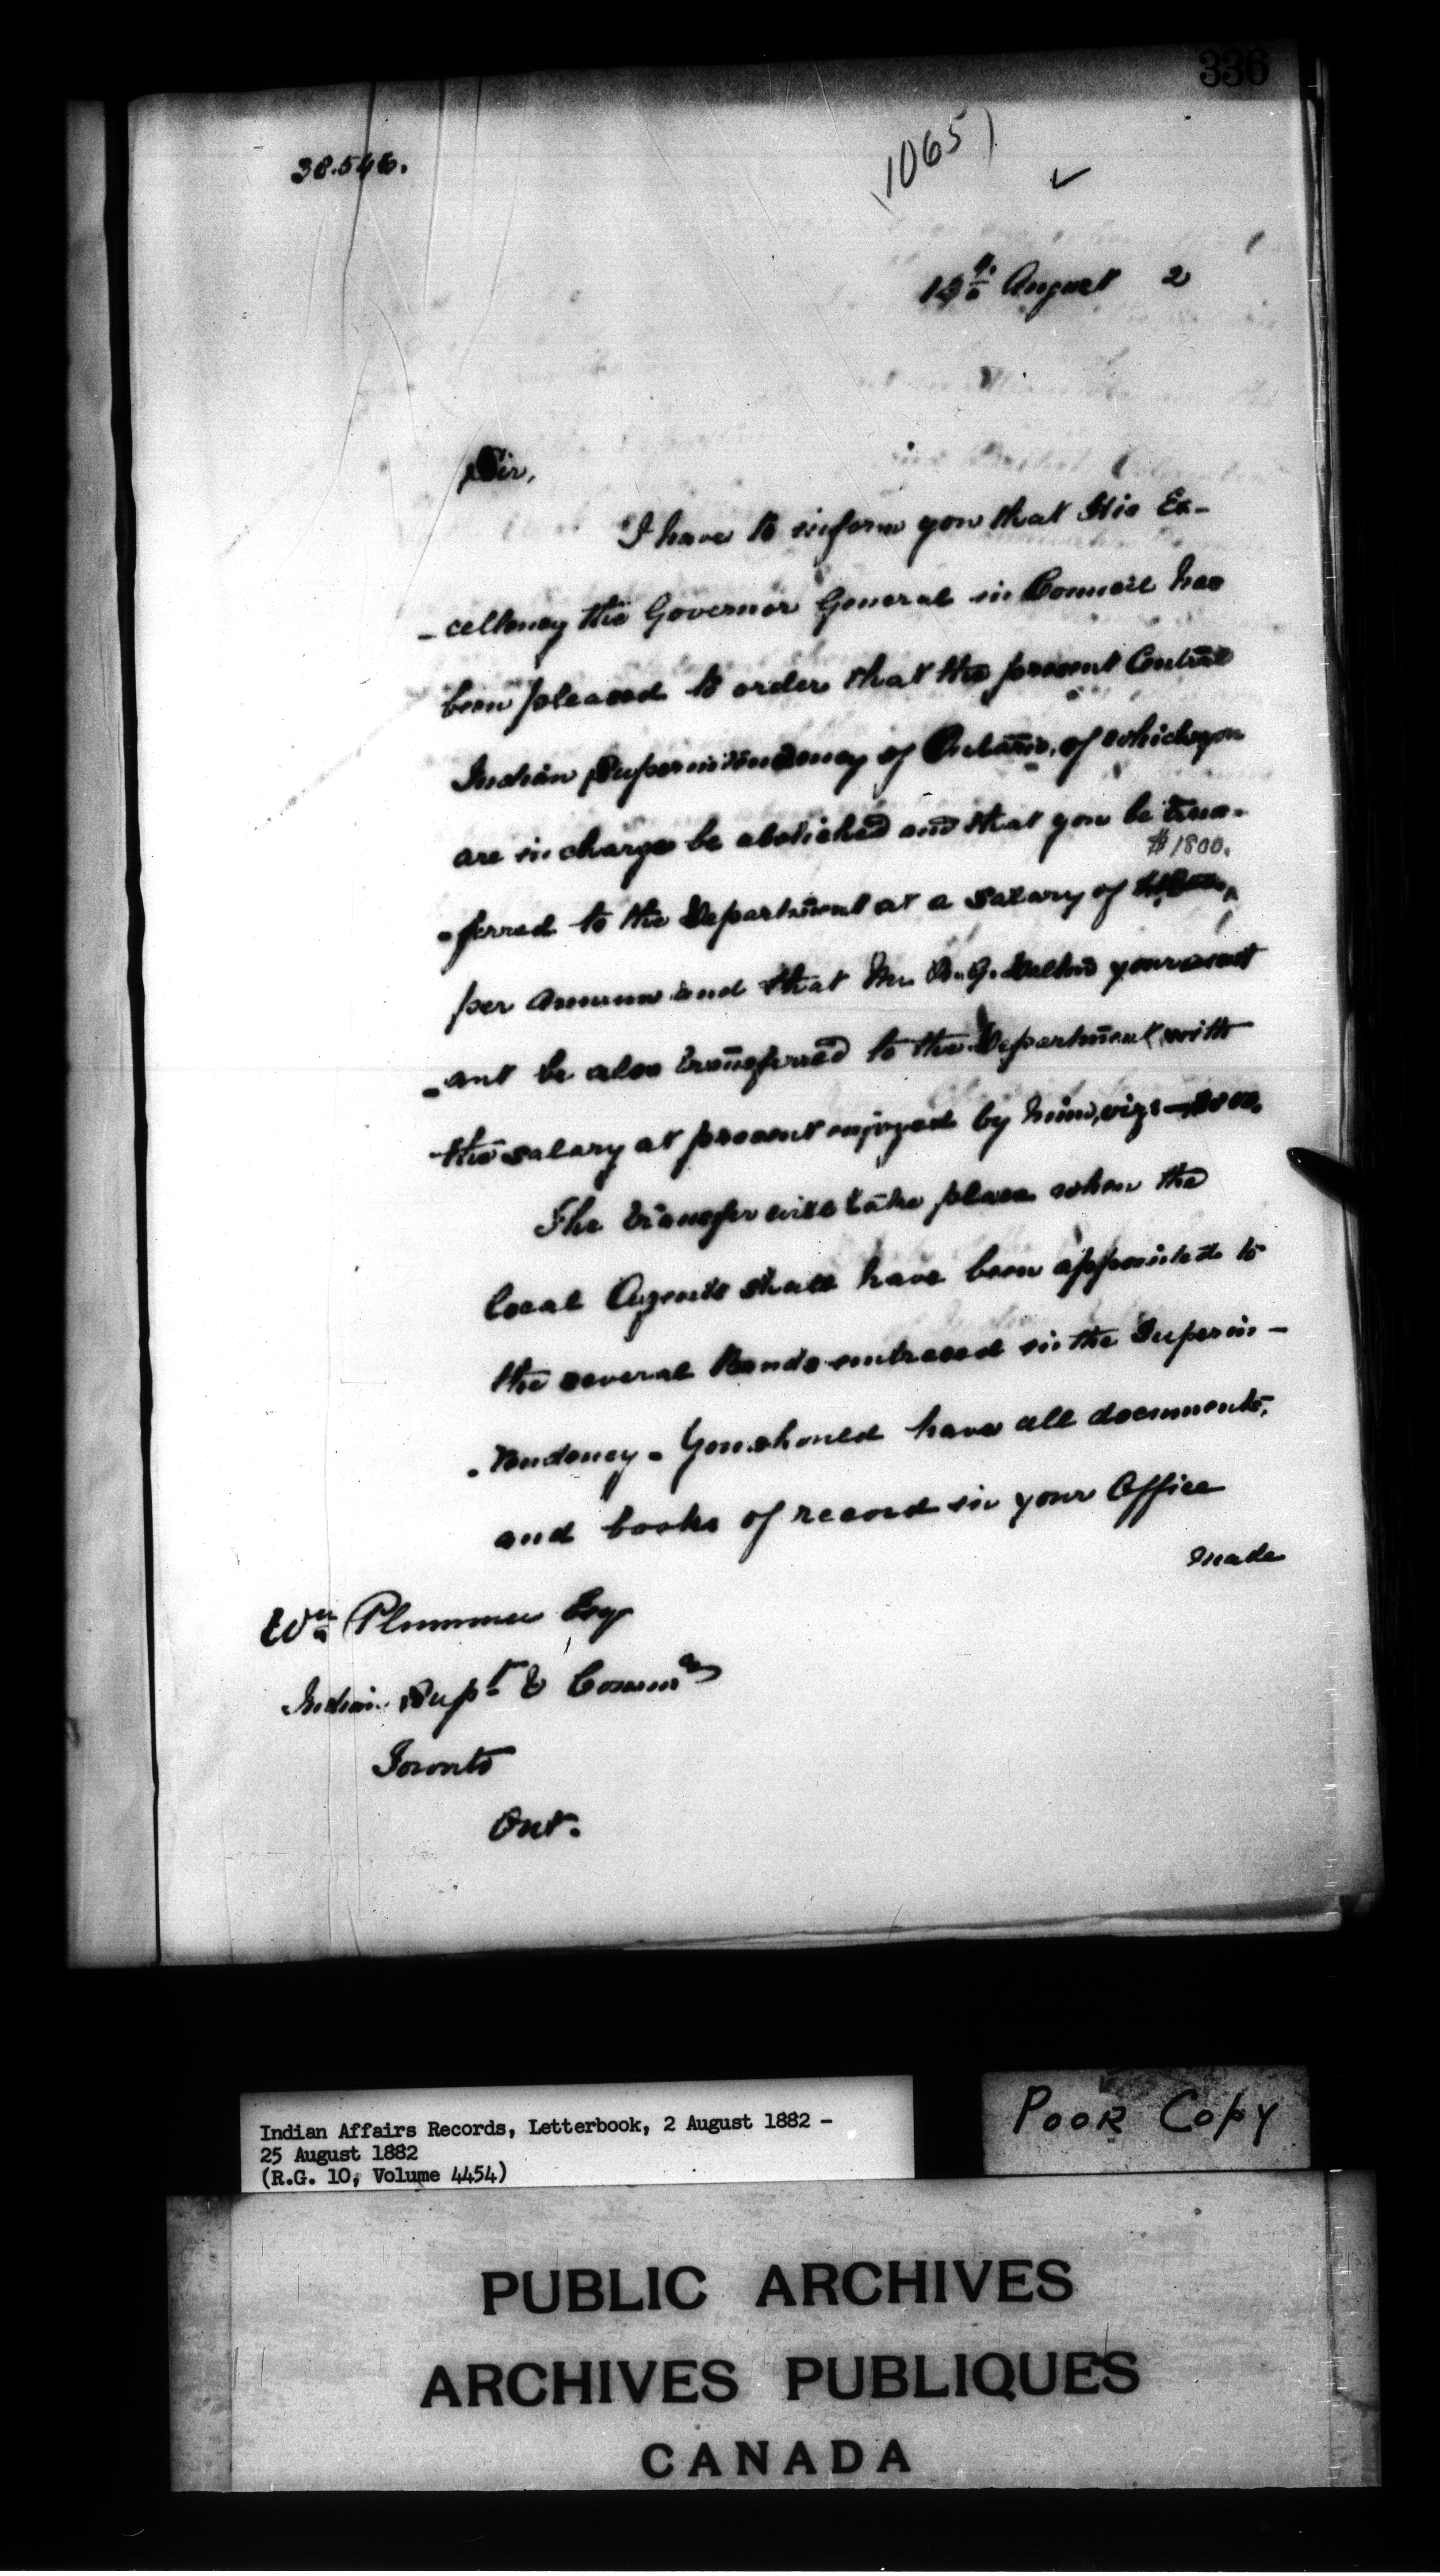 336
38.546.
1065)
August 2
Sir,
I have to inform you that His Ex-
-cellency the Governor General in Council has
been pleased to order that the present Central
Indian Superintendency of Ontario, of which you
are in charge be abolished and that you be trans-
$1800.
-ferred to the Department at a salary of
per annum and that Mr. G. Dalton your assist
-ant be also transferred to the Department with
the salary at present enjoyed by him, viz:
The transfer will take place when the
local Agents shall have been appointed to
the several Bands embraced in the Superin-
-tendency. You should have all documents,
and books of record in your Office
made
Wm Plummer Esq
Indian Supt & Commr
Toronto
Ont.
Indian Affairs Records, Letterbook, 2 August 1882 -
25 August 1882
(R.G. 10, Volume 4454)
POOR COPY
PUBLIC ARCHIVES
ARCHIVES PUBLIQUES
CANADA